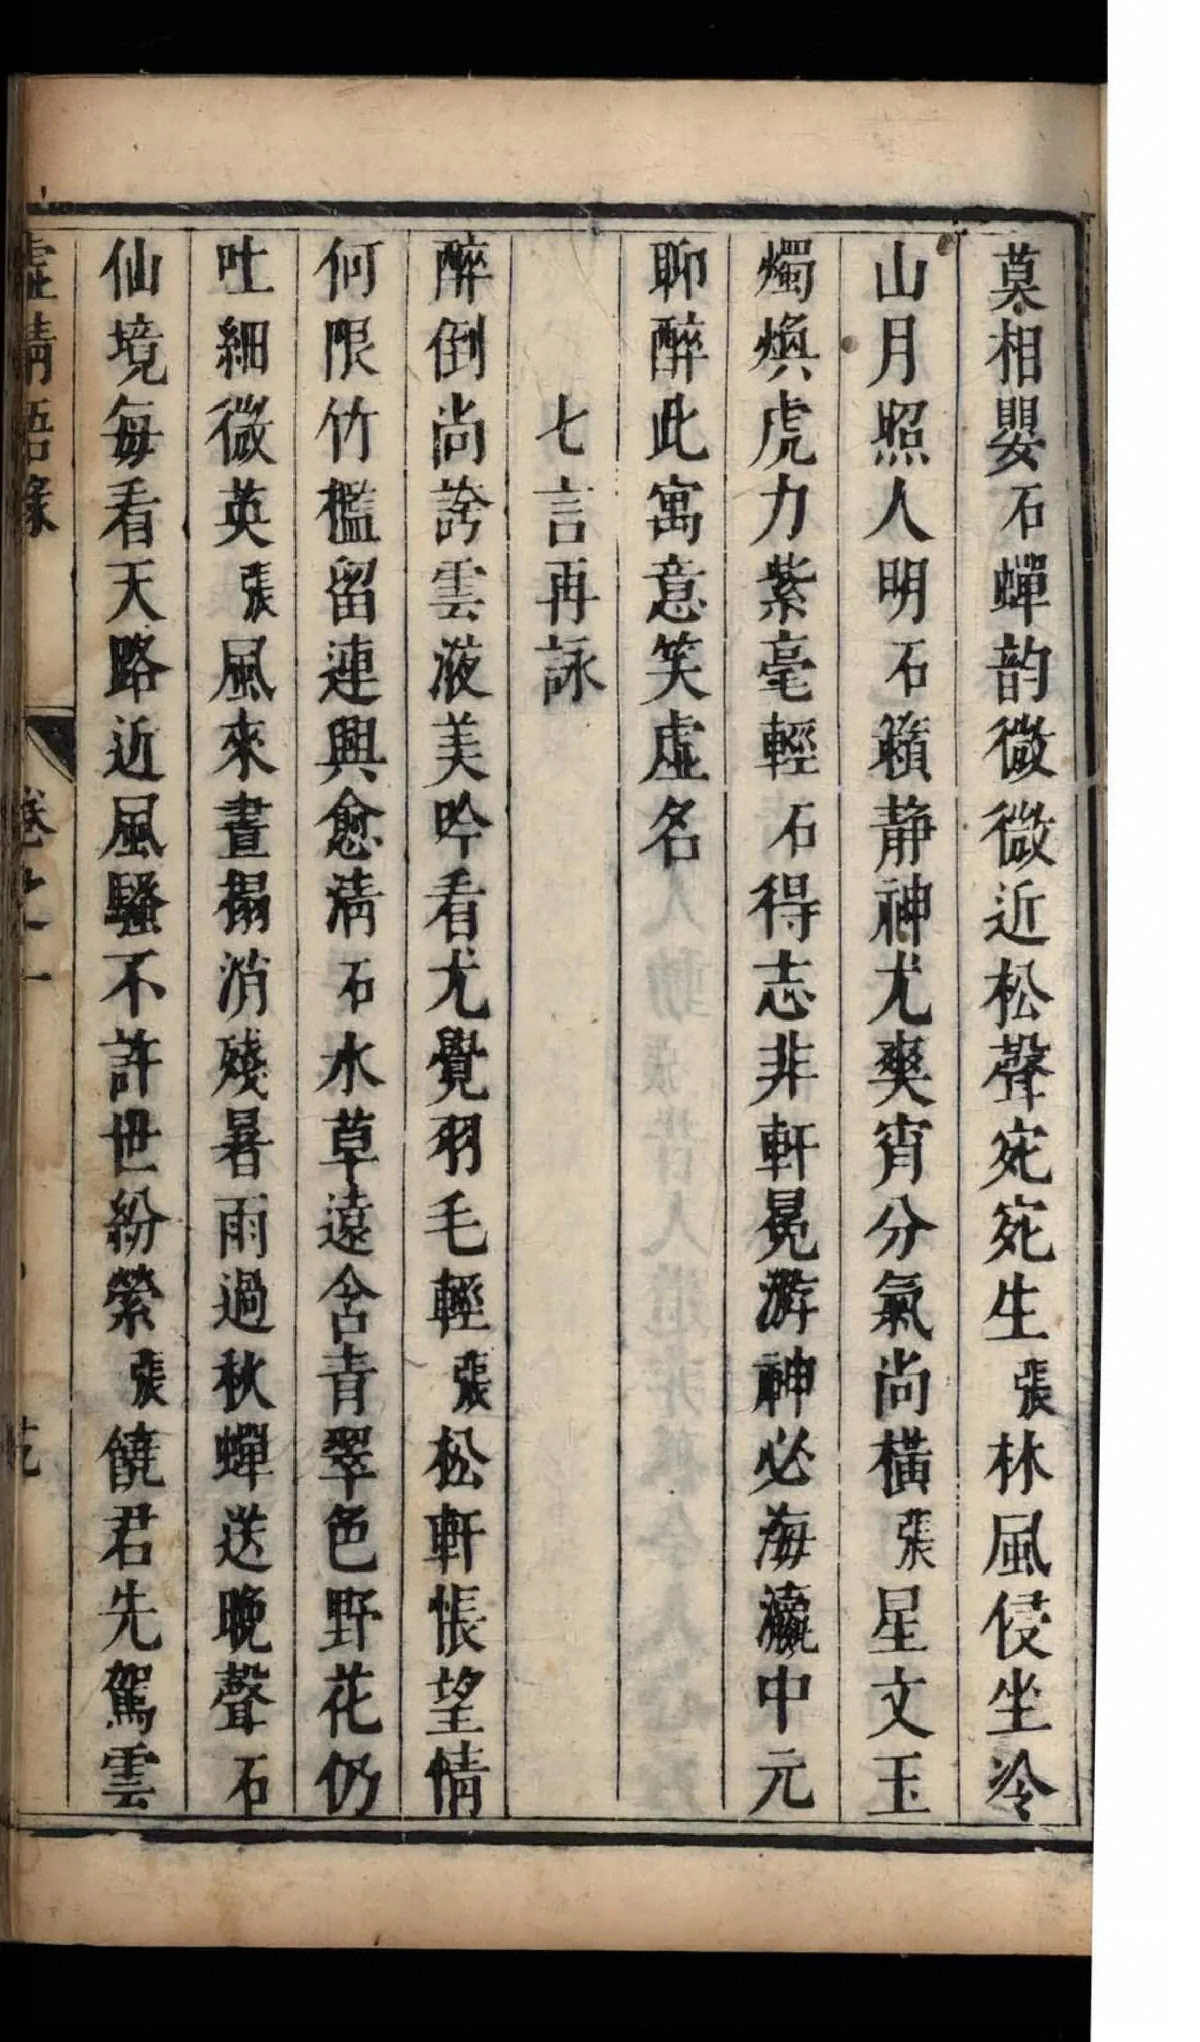 莫相嬰石蟬韵微微近松聲宛宛生張林風侵坐冷
山月照人明石籟静神尤爽宵分氣尚橫張星文玉
燭煥虎力紫毫輕石得志非軒冕游神必海瀛中元
聊醉此寓意笑虛名
七言再詠
醉倒尚誇雲液美吟看尤覺羽毛輕張松軒悵望情
何限竹檻留連興愈清石水草遠含青翠色野花仍
吐細微英張風來晝榻消殘暑雨過秋蟬送晚聲石
仙境每看天路近風騷不許世紛縈張饒君先駕雲
虛精語錄 卷之一